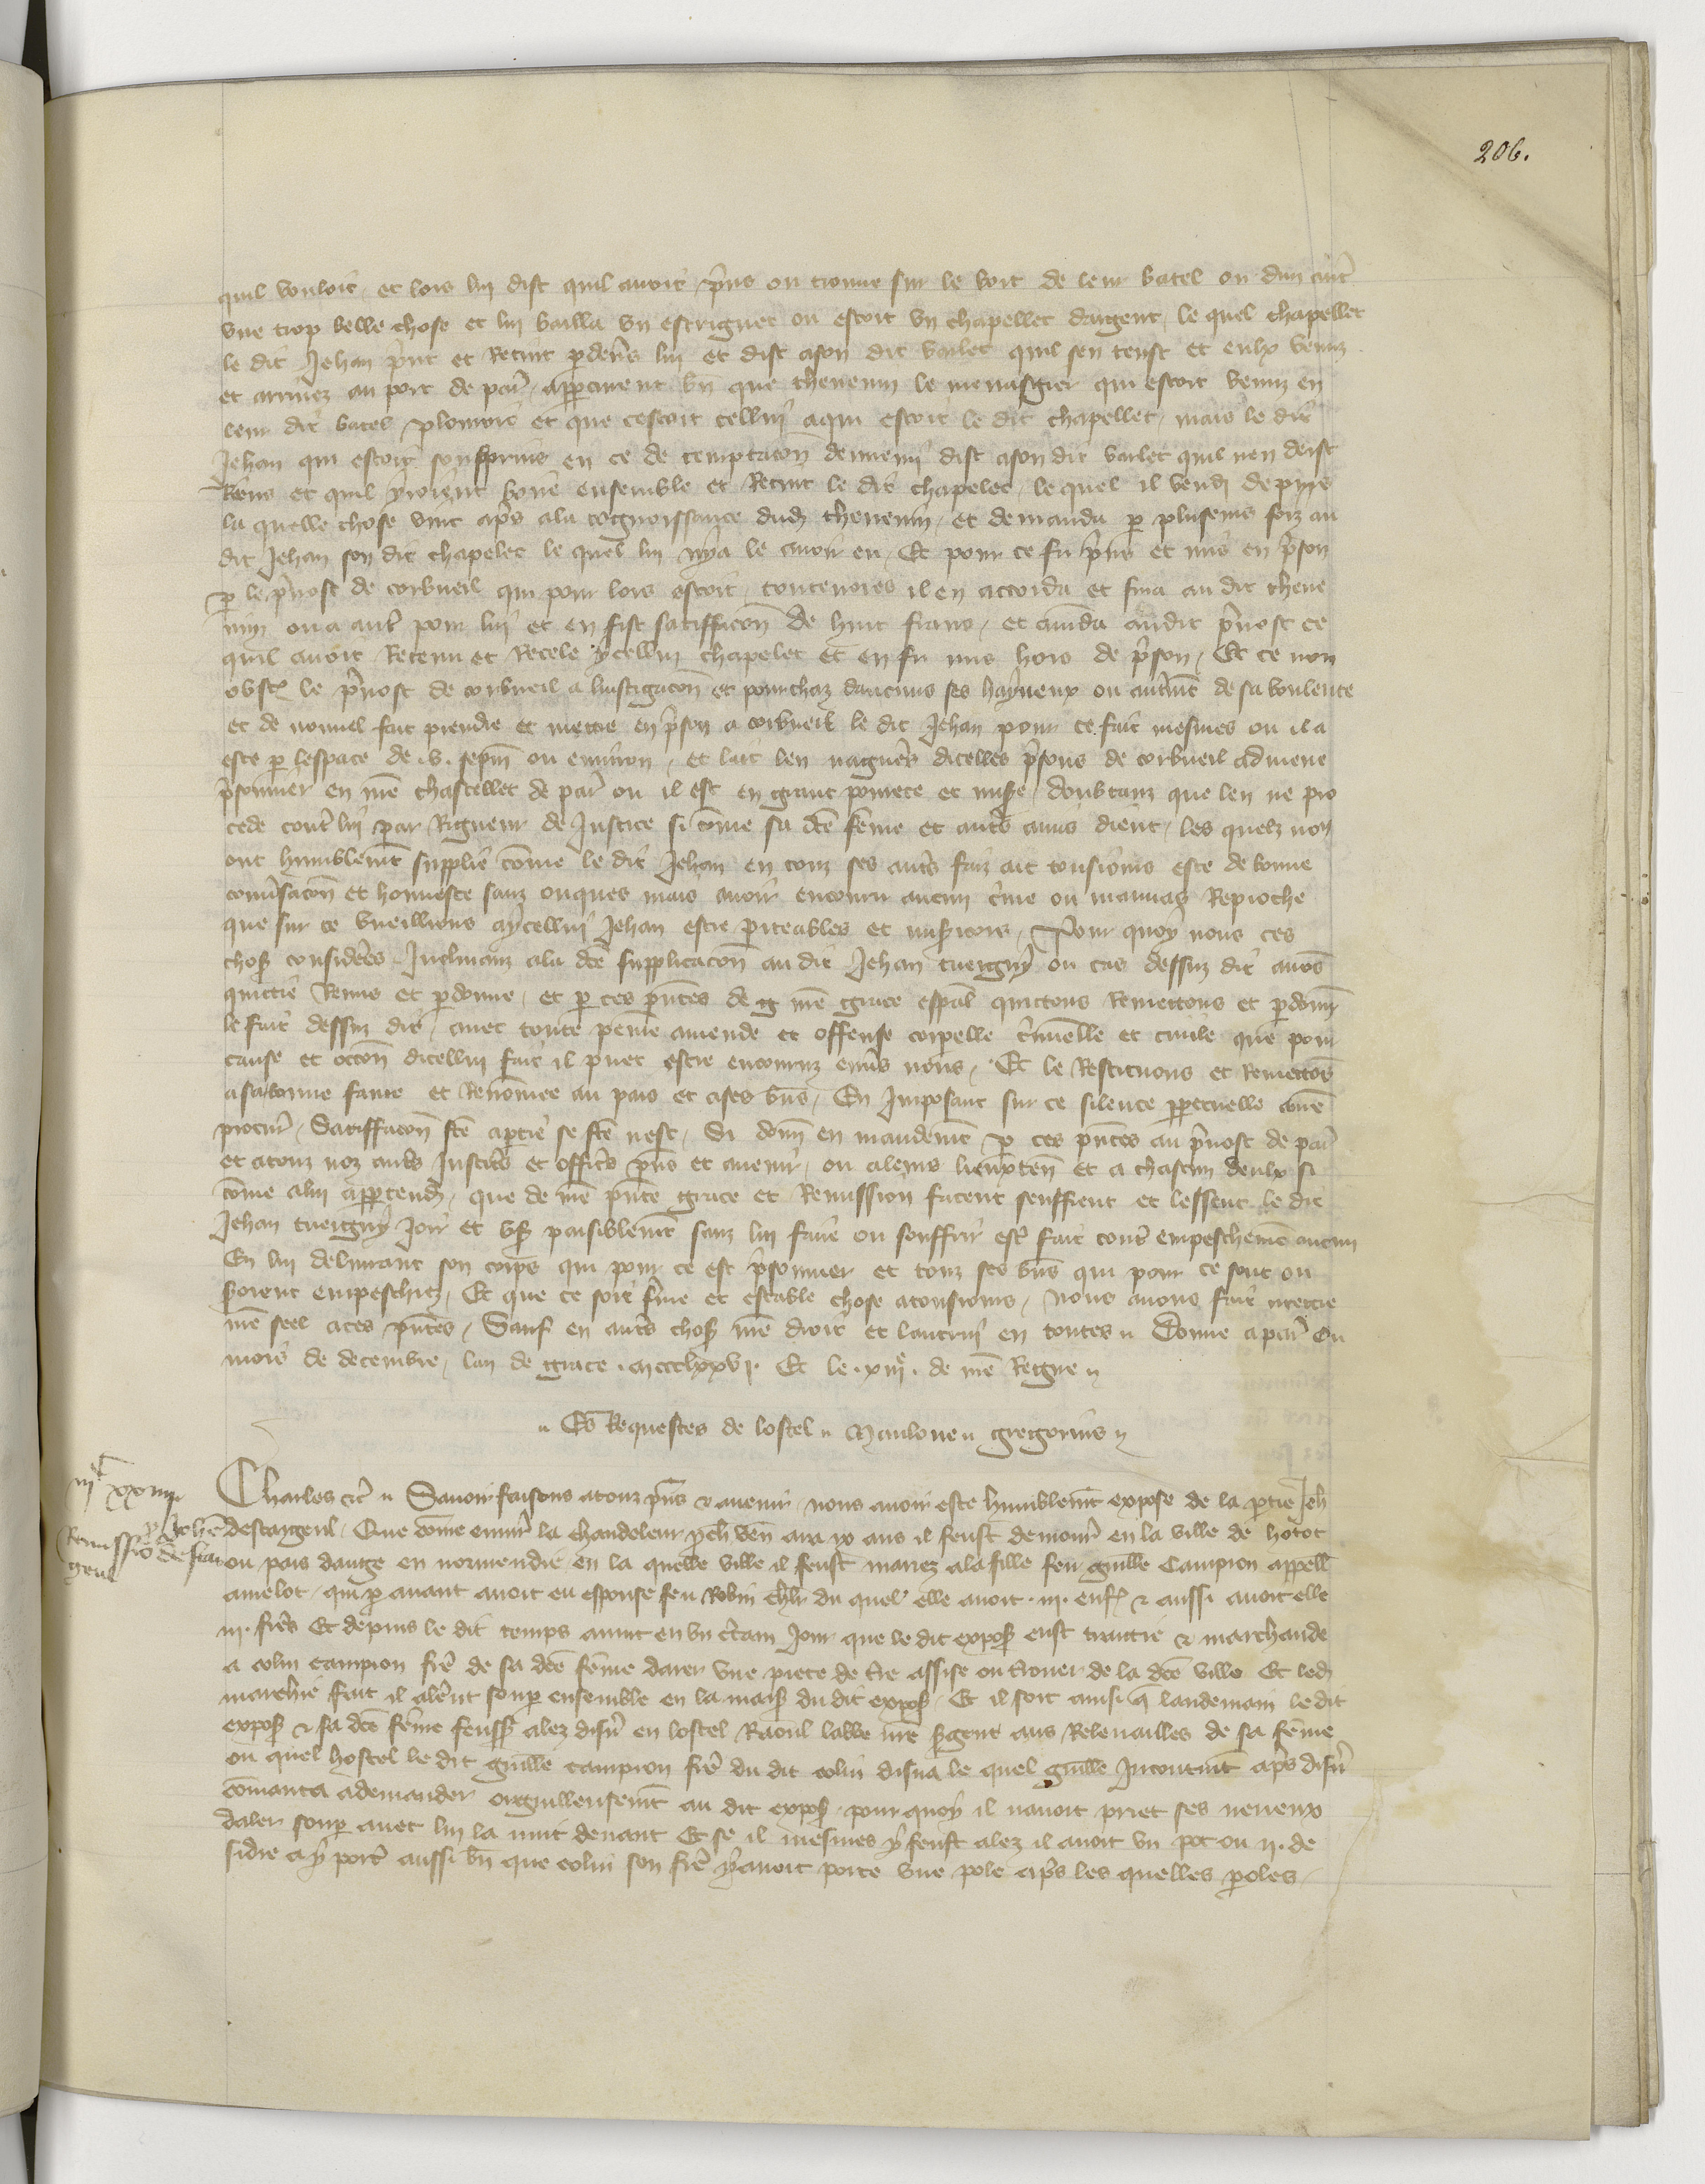 206.
quil vouloit et lors luy dist quil avoit p̃ns ou trouve sur le bort de leur batel ou dun autr̃
une trop belle chose et luy bailla un estriguet ou estoit un chapellet dargent, le quel chapellet
le dit Jehan p̃nt et Retint pdevs̃ luy et dist ason dit varlet quil sen teust et eulx venuz
et arrivez au port de par̃ appcurent bñ que thevenin le menasgier qui estoit venuz en
leur dit batel plouroit et que cestoit celluy aqui estoit le dit chapellet, mais le dit
Jehan qui estoit souspris en ce de temptacõn dennemi dist ason dit varlet quil nen deist
Riens et quil yroient boire ensemble et Retint le dit chapelet, le quel il vendi depuis
la quelle chose vint ap̃s ala cognoissance dud thevenin, et demanda p plusieurs foiz au
dit Jehan son dit chapelet le quel luy nya le avoir eu, Et pour ce fu p̃ns et mis en p̃son
p le p̃vost de corbueil qui pour lors estoit, toutevoies il en accorda et fina au dit theve
nin ou a autr̃ pour luy et en fist satiffacõn de huit frans, et amẽda audit p̃vost ce
quil avoit Retenu et Recele ycelluy chapelet et en fu mis hors de p̃son, Et ce non
obstᵗ le p̃vost de corbueil a linstigacõn et pourchaz daucuns ses hayneux ou autrẽmt de sa voulente
et de nouvel fait prendre et mettre en p̃son a corbueil le dit Jehan pour ce fait mesmes ou il a
este p lespace de .v. sepm̃ ou environ, et lait len nagueres dicelles p̃sons de corbueil admene
p̃sonnier en nr̃e chastellet de par̃ ou il est en grant povrete et mis̃e, doubtanz que len ne pro
cede contr̃ luy par Rigueur de Justice si cõme sa dcẽ fẽme et autr̃s amis dient, les quelz nous
ont humblem̃t supplie cõme le dit Jehan en touz ses autr̃s faiz ait tousiours este de bonne
convsacõn et honneste sanz onques mais avoir encouru aucun cr̃me ou mauvaiz Reproche
que sur ce vueillions aycelluy Jehan estre piteables et mis̃icors, Pour quoy nous ces
chos̃ considerees Inclinanz ala dcẽ supplicacõn au dit Jehan tuergny ou cas dessuz dit avõs
quittie Remis et pdonne, et p ces pñtes de g nr̃e grace esp̃al quictons Remettons et pdonñ
le fait dessuz dit, avec toute peine amende et offense corpelle cr̃minelle et civile que pour
cause et occõn dicelluy fait il puet estre encouruz envs̃ nous, Et le Restituons et Remettõs
asa bonne fame et Renõmee au pais et ases biñs, En Imposant sur ce silence ppetuelle anr̃e
procur̃, Satiffacõn fcẽ aptie se fcẽ nest, Si donñ en mandem̃t p ces pñtes au p̃vost de par̃
et atouz noz autr̃s Justic̃s et offic̃s p̃ns et avenir, ou aleurs lieuxteñ et a chascun deulx si
cõme aluy appartendr̃, que de nr̃e pñte grace et Remission facent seuffrent et lessent le dit
Jehan tuergny Joir et us̃ paisiblem̃t sanz luy faire ou souffrir estr̃ fait contr̃ empeschem̃t aucun
En luy delivrant son corps qui pour ce est p̃sonnier et touz ses biñs qui pour ce sont ou
s̃oient empeschiez, Et que ce soit ferme et estable chose atousiours, nous avons fait mettre
nr̃e seel aces pñtes, Sauf en autr̃s chos̃ nr̃e droit et lautruy en toutes. Donne apar̃ Ou
mois de decembre, lan de grace .mccclxxvi. Et le .xiiiᵉ. de nr̃e Regne
Es Requestes de lostel. Maulone. gregorius
iijᶜ xxiiij
Remissiõ p̃ Jehẽ descar
geul
Charles etc̃. Savoir faisons atouz p̃ns et avenir nous avoir este humblem̃t expose de la ptie Jeh̃
descargeul, Que cõme envir̃ la chandeleur pch̃ veñ ara ix ans il feust demour̃ en la ville de hotot
ou pais dauge en normendie en la quelle ville il feust mariez ala fille feu guillẽ Campion appell̃
amelot qui p avant avoit eu espouse feu Robin du quel elle avoit .iii. enfᵗ et aussi avoit elle
iij. frẽs Et depuis le dit temps avint en un cr̃tain Jour que le dit expos̃ eust traictie et marchande
a colin campion frẽ de sa dcẽ fẽme darer une piece de tr̃e assise ou trouer de la dcẽ ville Et led
marchie fait il alẽrent soup ensemble en la mais̃ du dit expos̃, Et il soit ainsi q̃ landemain le dit
expos̃ et sa dcẽ fẽme feuss̃ alez disñ en lostel Raoul labbe nr̃e s̃gent aus Relevailles de sa fẽme
ou quel hostel le dit guillẽ campion frẽ du dit colin disna le quel guillẽ Incontinẽt ap̃s disñ
cõmanca ademander orguilleusem̃t au dit expos̃ pour quoy il navoit priet ses neveux
daler soup avec luy la nuit devant Et se il mesmes y feust alez il avoit un pot ou ij. de
sidre a y porter̃ aussi bñ que colin son frẽ y avoit porte une pole ap̃s les quelles poles